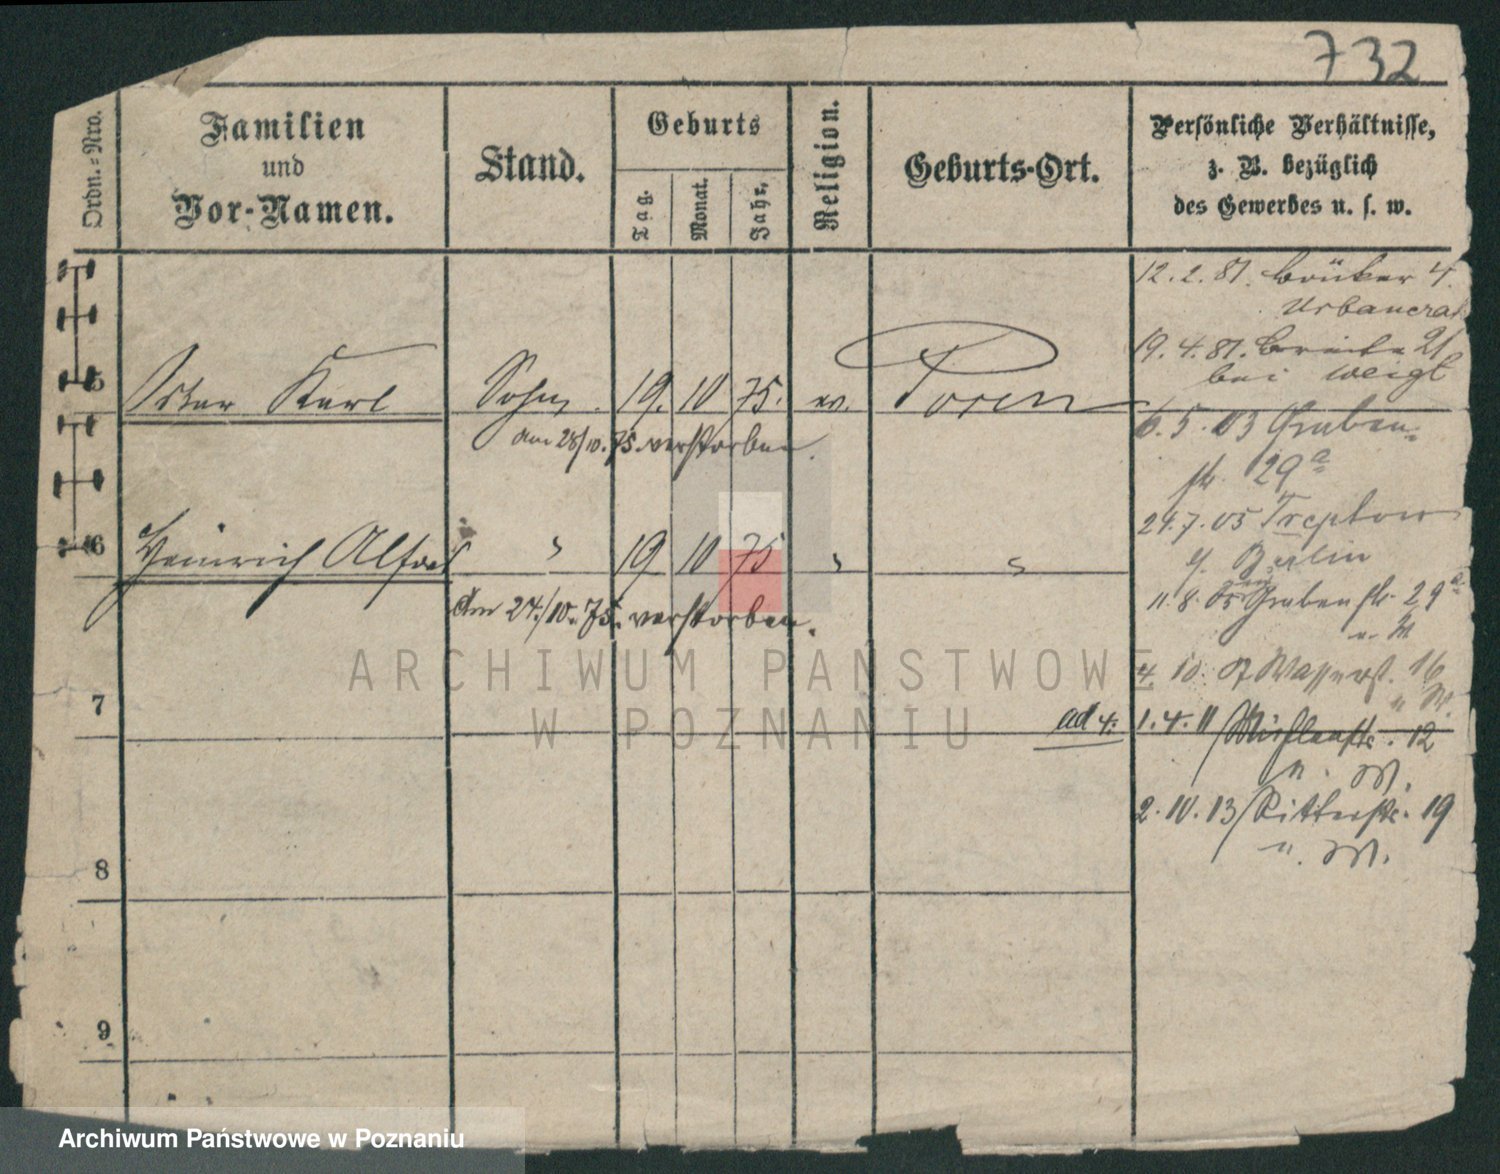 732
Ordn.-Nro.
Familien
und
Vor-Namen.
Stand.
Geburts
Tag.
Monat.
Jahr.
Religion.
Geburts-Ort.
Persönliche Verhältnisse,
z. B. bezüglich
des Gewerbes u. s. w.
12. 2. 81.
4.
19. 4. 81. Breite 21
bei Weigt
5 Oskar Karl Sohn. 19. 10 75. ev. Posen
am 28/10. 75. verstorben.
6. 5. 03 Graben-
str. 29a
24. 7. 05 Treptow
b. Berlin
6 Heinrich Alfred " 19 10 75 " "
am 24./10. 75. verstorben.
11. 8. 05 Grabenstr. 29a
u. W.
4. 10. 07 Wasserst. 16
u. W.
7
ad 4. 1. 4. 11 12
u. W.
2. 10. 13 Ritterstr. 19
u. W.
8
9
ARCHIWUM PAŃSTWOWE
W POZNANIU
Archiwum Państwowe w Poznaniu